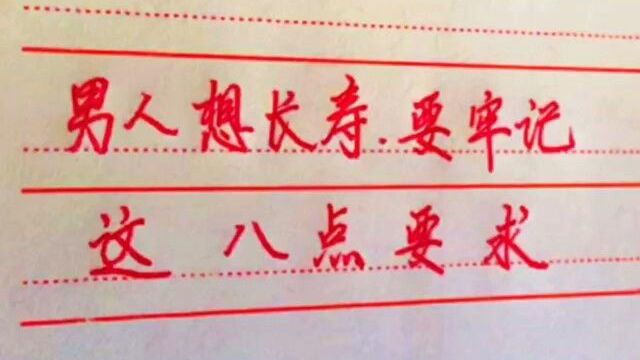 男人想长寿.要牢记
这八点要求